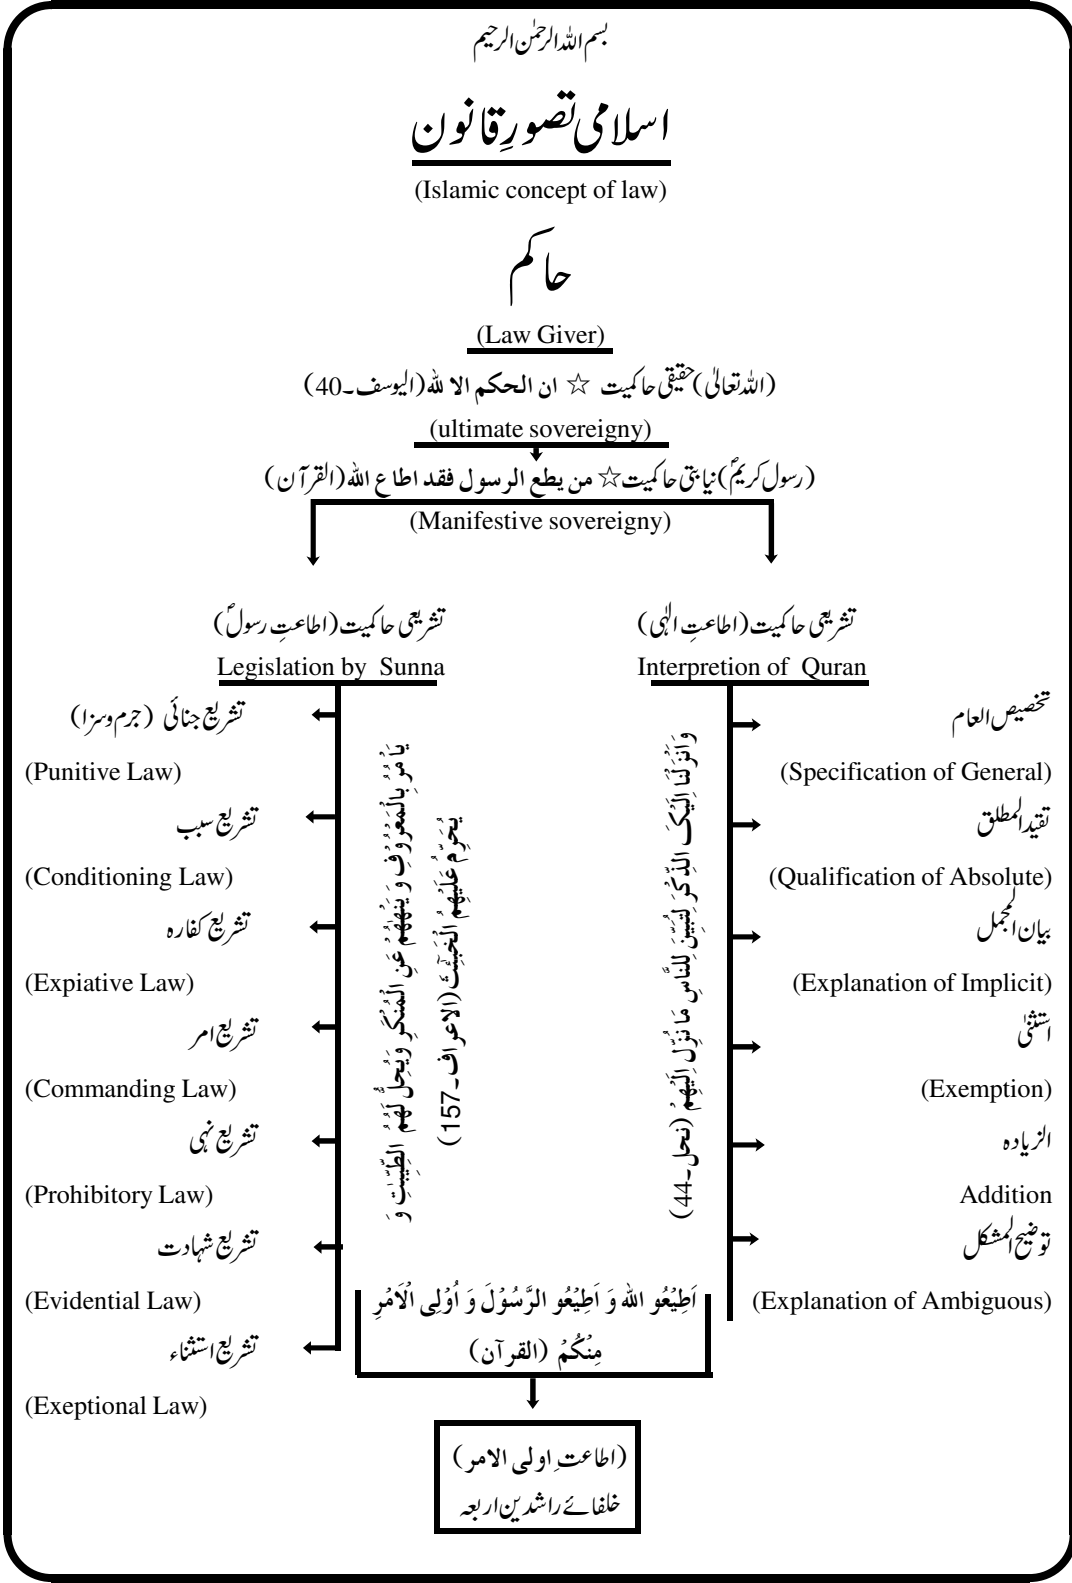 بسم اللہ الرحمٰن الرحیم
اسلامی تصورِ قانون
(Islamic concept of law)
حاکم
(Law Giver)
(اللہ تعالیٰ) حقیقی حاکمیت ☆ ان الحکم الا للہ (الیوسف۔40)
(ultimate sovereignty)
(رسول کریمؐ) نیابتی حاکمیت ☆ من یطع الرسول فقد اطاع اللہ (القرآن)
(Manifestive sovereignty)
تشریعی حاکمیت (اطاعتِ الٰہی)
Interpretion of Quran
تخصیص العام
(Specification of General)
تقیید المطلق
(Qualification of Absolute)
بیان المجمل
(Explanation of Implicit)
استثنیٰ
(Exemption)
الزیادہ
Addition
توضیح المشکل
(Explanation of Ambiguous)
وَاَنْزَلْنَا اِلَیْکَ الذِّکْرَ لِتُبَیِّنَ لِلنَّاسِ مَا نُزِّلَ اِلَیْهِمْ (نحل۔44)
تشریعی حاکمیت (اطاعتِ رسولؐ)
Legislation by Sunna
تشریع جنائی (جرم و سزا)
(Punitive Law)
تشریع سبب
(Conditioning Law)
تشریع کفارہ
(Expiative Law)
تشریع امر
(Commanding Law)
تشریع نہی
(Prohibitory Law)
تشریع شہادت
(Evidential Law)
تشریع استثناء
(Exeptional Law)
یَاْمُرُ بِالْمَعْرُوْفِ وَ یَنْهٰهُمْ عَنِ الْمُنْکَرِ وَیُحِلُّ لَهُمُ الطَّیِّبٰتِ وَ
یُحَرِّمُ عَلَیْهِمُ الْخَبٰٓئِثَ (الاعراف۔157)
اَطِیْعُو اللہ وَ اَطِیْعُو الرَّسُوْلَ وَ اُوْلِی الْاَمْرِ
مِنْکُمْ (القرآن)
(اطاعتِ اولی الامر)
خلفائے راشدین اربعہ